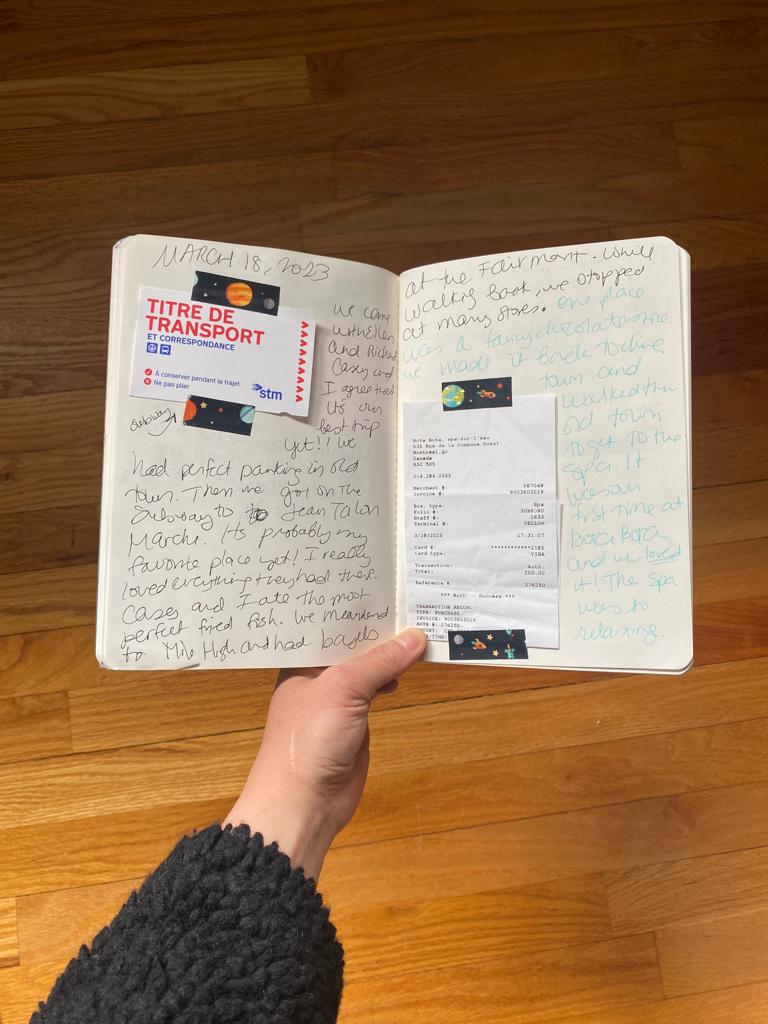 MARCH 18, 2023
TITRE DE
TRANSPORT
ET CORRESPONDANCE
À conserver pendant le trajet
Ne pas plier
stm
subway
we came
with Ellen
and Richard
Casey and
I agree that
its our
best trip
yet!! we
had perfect parking in old
town. Then we got on the
subway to Jean Talon
March. Its probably my
favorite place yet! I really
loved everything they had there.
Casey and I ate the most
perfect fried fish. we meandered
to Mile High and had bagels
at the Fairmont. While
walking back, we stopped
at many stores. One place
was a fancy chocolate one.
we made it back to
town and
walked thru
old town
to get to the
spa. It
was our
first time at
Bota Bota
and we loved
it! The spa
was so
relaxing.
Bota Bota, spa-sur-l'eau
535 Rue de la Commune Ouest
Montreal, QU
Canada
H3C 5X5
514.284.0333
Merchant #: 587048
Invoice #: 9003603019
Rev. type: Spa
Folio #:
Staff #: 2633
Terminal #: YELLOW
3/18/2023 17:31:07
Card #: ************2185
Card type: VISA
Transaction: Auth.
Total: 200.00
Reference #: 276250
*** Auth - Success ***
TRANSACTION RECORD
TYPE: PURCHASE
INVOICE: 9003603019
AUTH #: 276250